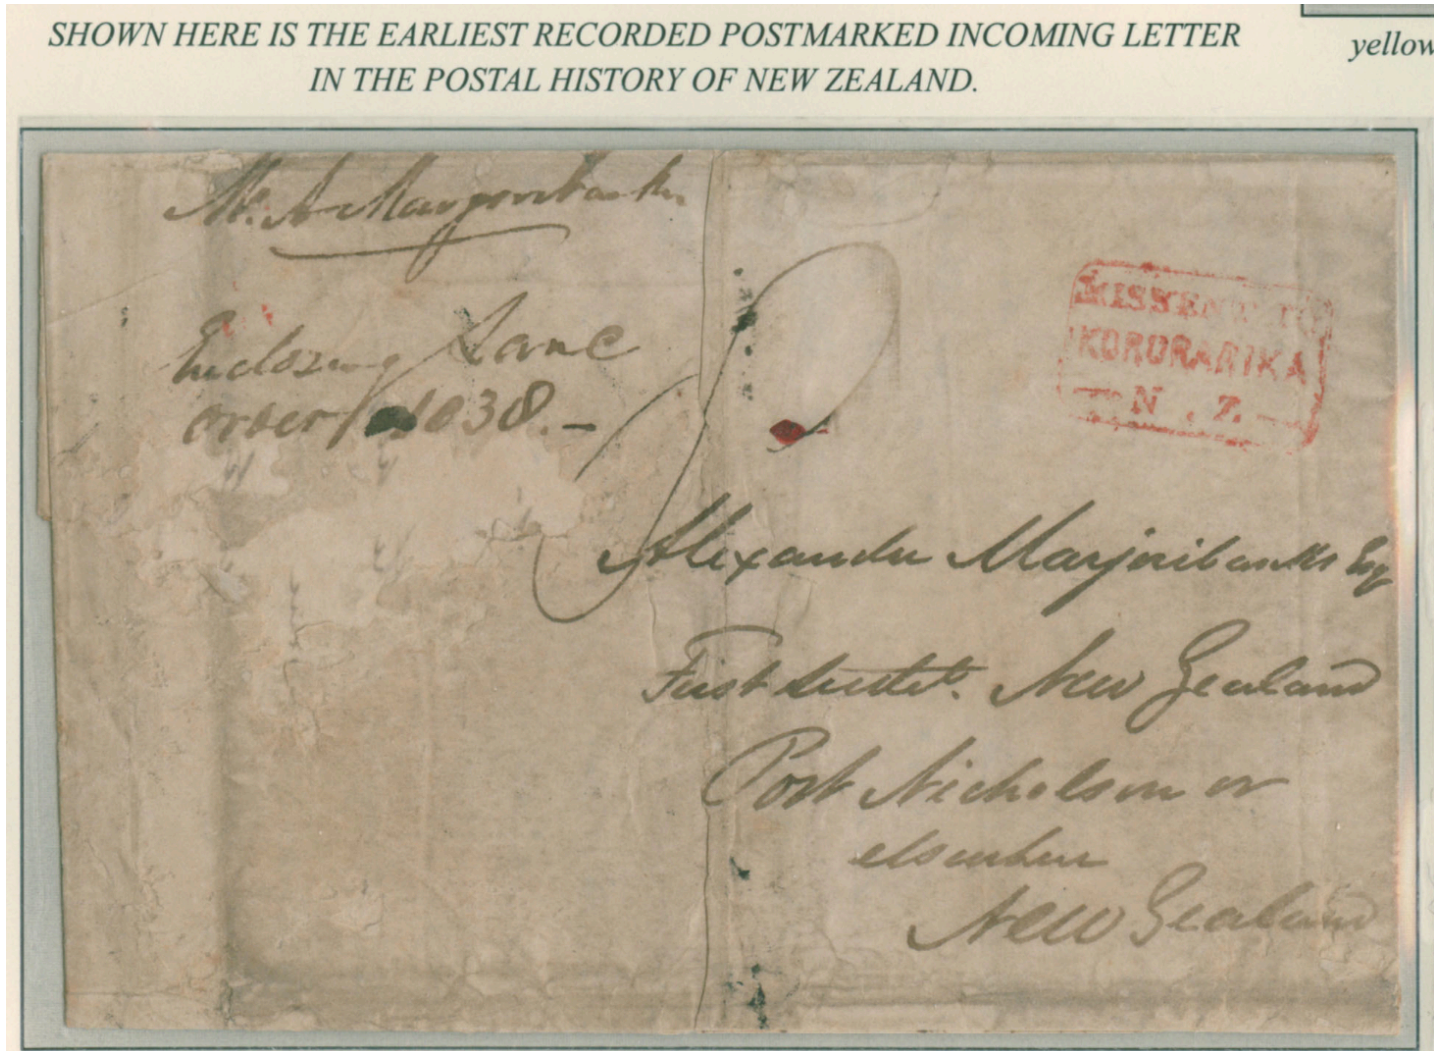 SHOWN HERE IS THE EARLIEST RECORDED POSTMARKED INCOMING LETTER
IN THE POSTAL HISTORY OF NEW ZEALAND.
yellow
Mr. A Marjoribanks
Enclosing Land
order 1038.-
MISSENT TO
KORORARIKA
N. Z.
Alexander Marjoribanks Esq
First New Zealand
Port Nicholson or
elsewhere
New Zealand